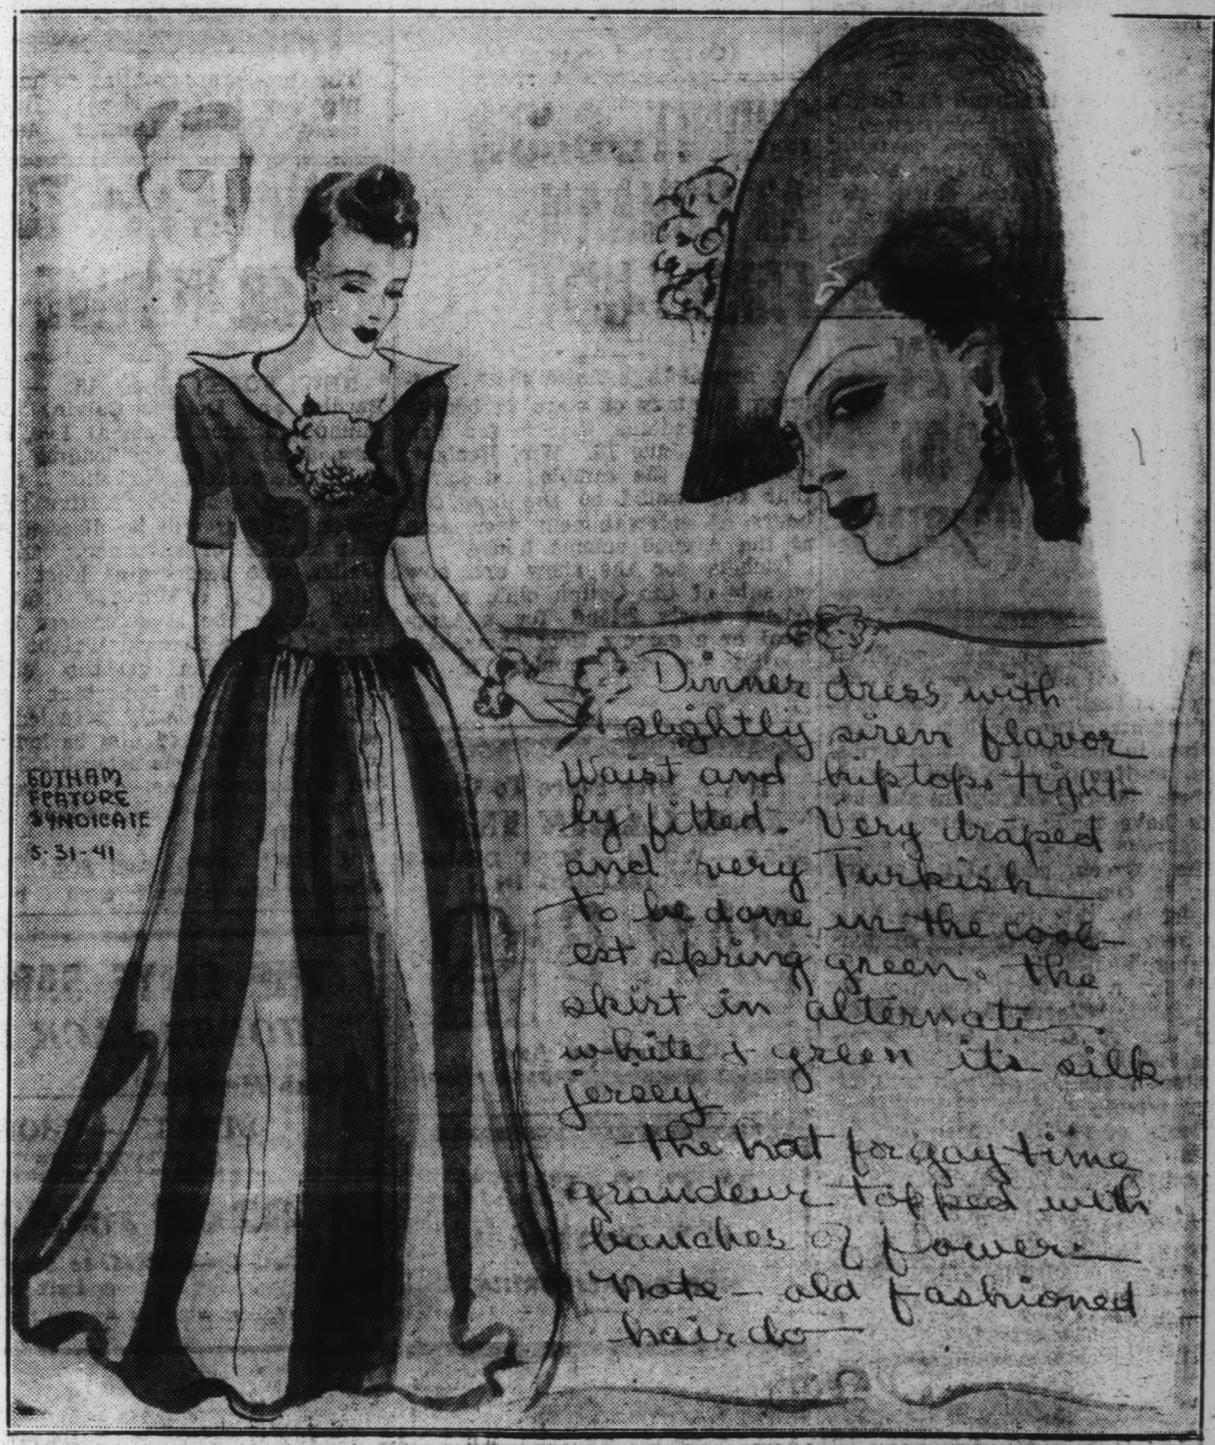 GOTHAM
FEATURE
SYNDICATE
5-31-41
Dinner dress with
slightly siren flavor
Waist and hiptops tight-
ly fitted. Very draped
and very Turkish
To be done in the cool-
est spring green. The
skirt in alternate
white & green its silk
jersey
The hat for gay time
grandeur topped with
bunches of flowers
Note - old fashioned
hairdo